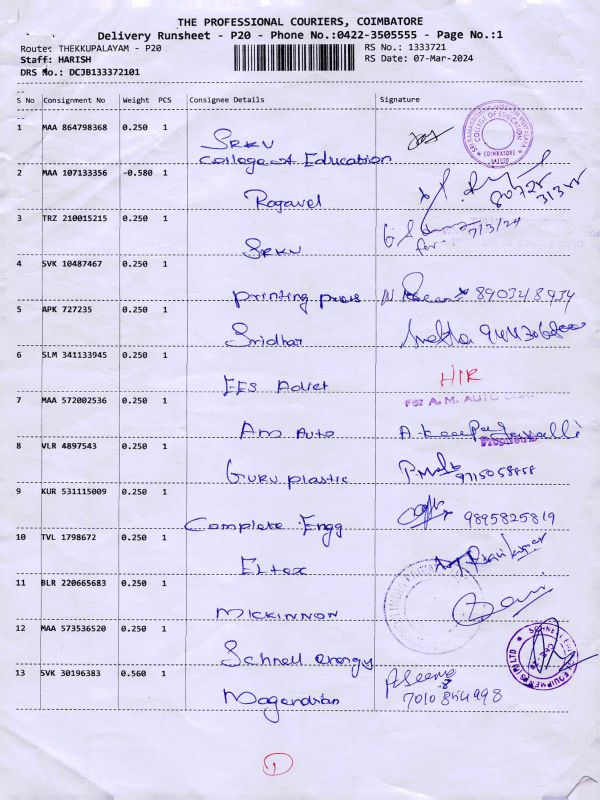 THE PROFESSIONAL COURIERS, COIMBATORE
Delivery Runsheet - P20 - Phone No.:0422-3505555 - Page No.:1
Route: THEKKUPALAYAM - P20 RS No.: 1333721
Staff: HARISH RS Date: 07-Mar-2024
DRS No.: DCJB133372101
S No Consignment No Weight PCS Consignee Details Signature
1 MAA 864798368 0.250 1
SRKV
College of Education
COLLEGE OF EDUCATION
COIMBATORE
2 MAA 107133356 -0.580 1
Ragavel
3 TRZ 210015215 0.250 1
7/3/24
SRKV for
4 SVK 10487467 0.250 1
Printing press
5 APK 727235 0.250 1
Sridhar
6 SLM 341133945 0.250 1
EES Advet HIR
7 MAA 572002536 1 0.250
For A. M. AUTO
Am Auto
8 VLR 4897543 0.250 1
Guru plastic
9 KUR 531115009 0.250 1
Complete Engg 9895825819
10 TVL 1798672 0.250 1
Eltex
11 BLR 220665683 0.250 1
MICKINNON
12 MAA 573536520 0.250 1
Schnell energy
13 SVK 30196383 0.560 1
Magendran
1